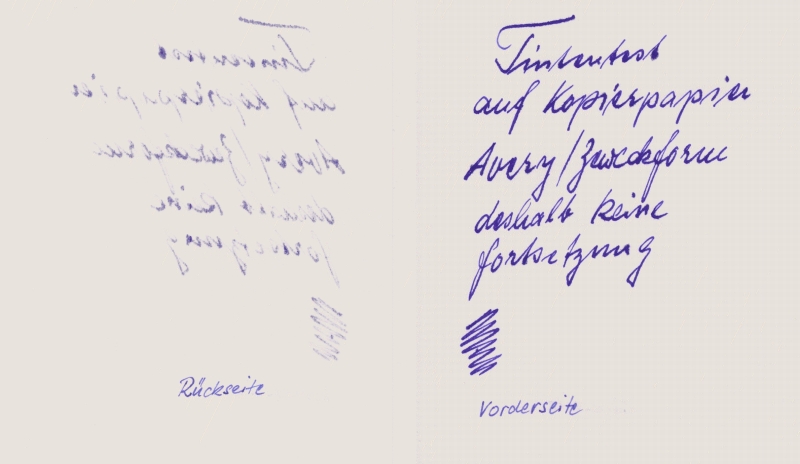 Tintentest
auf Kopierpapier
Avery/Zweckform
deshalb keine
fortsetzung
Vorderseite
Rückseite